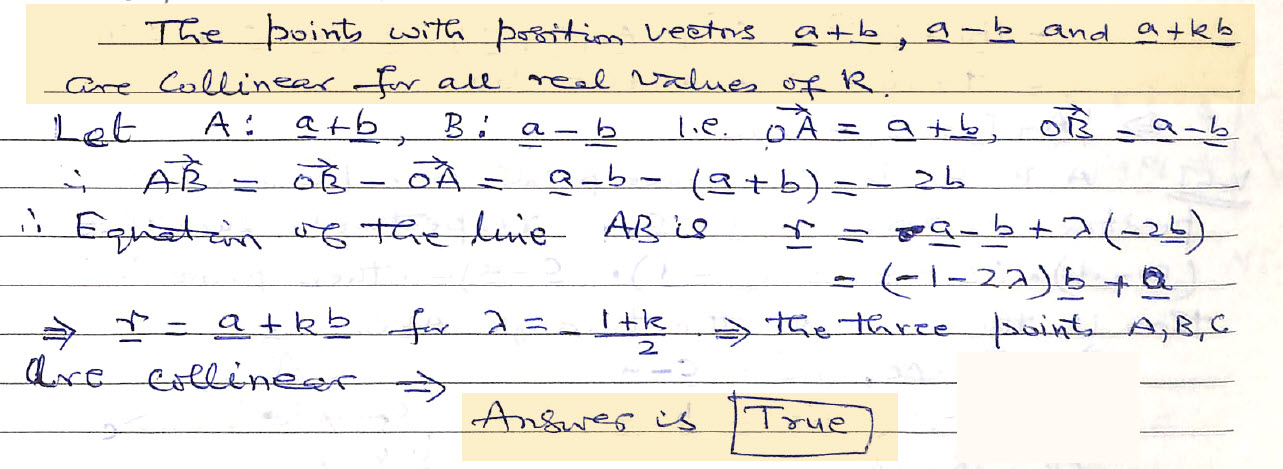 The points with position vectors a+b, a-b and a+kb
are Collinear for all real values of k.
Let A: a+b, B: a-b i.e. OA = a+b, OB = a-b
∴ AB = OB - OA = a-b - (a+b) = - 2b
∴ Equation of the line AB is r = a-b+λ(-2b)
= (-1-2λ)b + a
⇒ r = a+kb for λ = - 1+k/2 ⇒ the three points A, B, C
are collinear ⇒
Answer is True